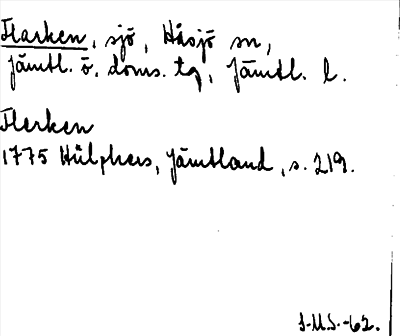 Flarken, sjö, Håsjö sn,
Jämtl. ö. doms. tg, Jämtl. l.
Flerken
1775 Hülphers, Jämtland, s. 219.
S.M.S.-62.